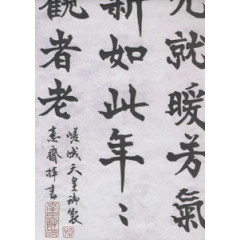 就暖芳氣
新如此年〻
觀者老
嵯峨天皇御製
拜書